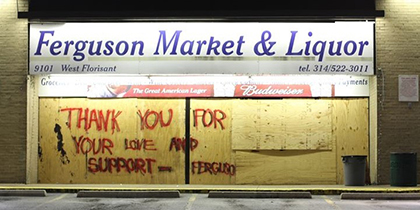 Ferguson Market & Liquor
9101 West Florissant tel. 314/522-3011
The Great American Lager Budweiser
THANK YOU FOR
YOUR LOVE AND
SUPPORT - FERGUSON